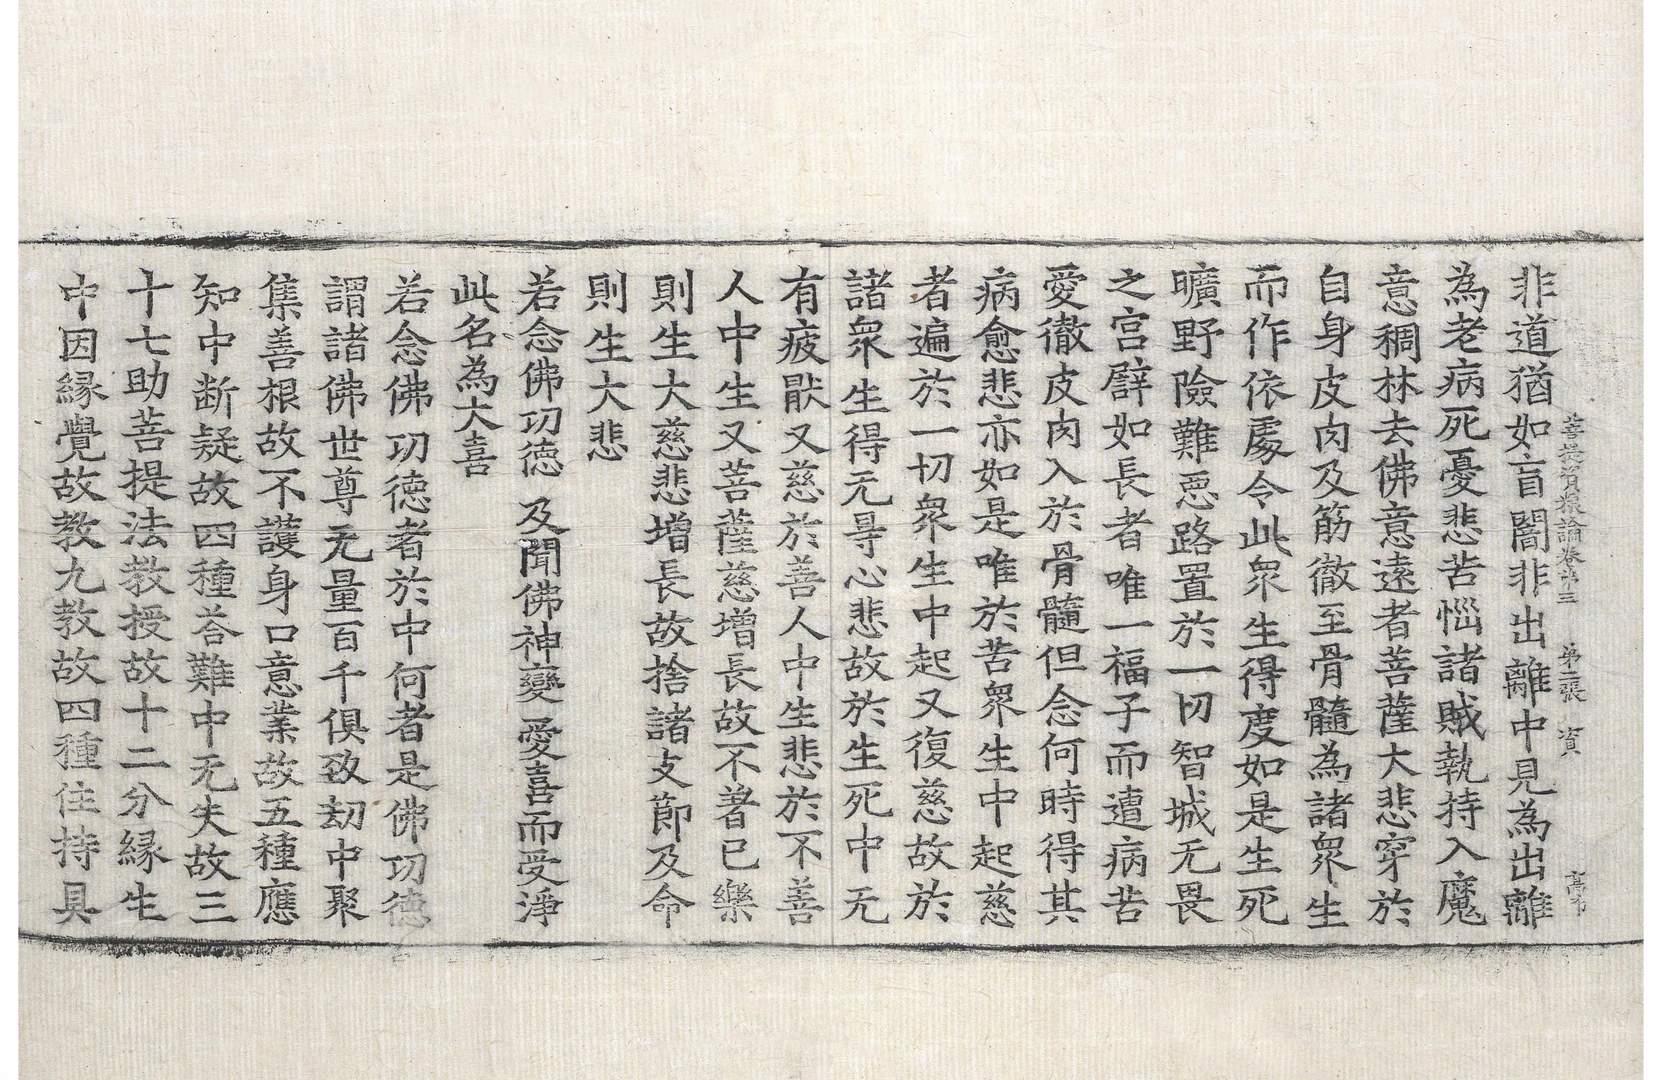 菩提資糧論卷第三 第二張 資
非道猶如盲闇非出離中見為出離
為老病死憂悲苦惱諸賊執持入魔
意稠林去佛意遠者菩薩大悲穿於
自身皮肉及筋徹至骨髓為諸眾生
而作依處令此眾生得度如是生死
曠野險難惡路置於一切智城无畏
之宮譬如長者唯一福子而遭病苦
愛徹皮肉入於骨髓但念何時得其
病愈悲亦如是唯於苦眾生中起慈
者遍於一切眾生中起又復慈故於
諸眾生得无㝵心悲故於生死中无
有疲猒又慈於善人中生悲於不善
人中生又菩薩慈增長故不著已樂
則生大慈悲增長故捨諸支節及命
則生大悲
若念佛功德 及聞佛神變 愛喜而受淨
此名為大喜
若念佛功德者於中何者是佛功德
謂諸佛世尊无量百千俱致劫中聚
集善根故不護身口意業故五種應
知中斷疑故四種荅難中无失故三
十七助菩提法教授故十二分緣生
中因緣覺故教九教故四種住持具